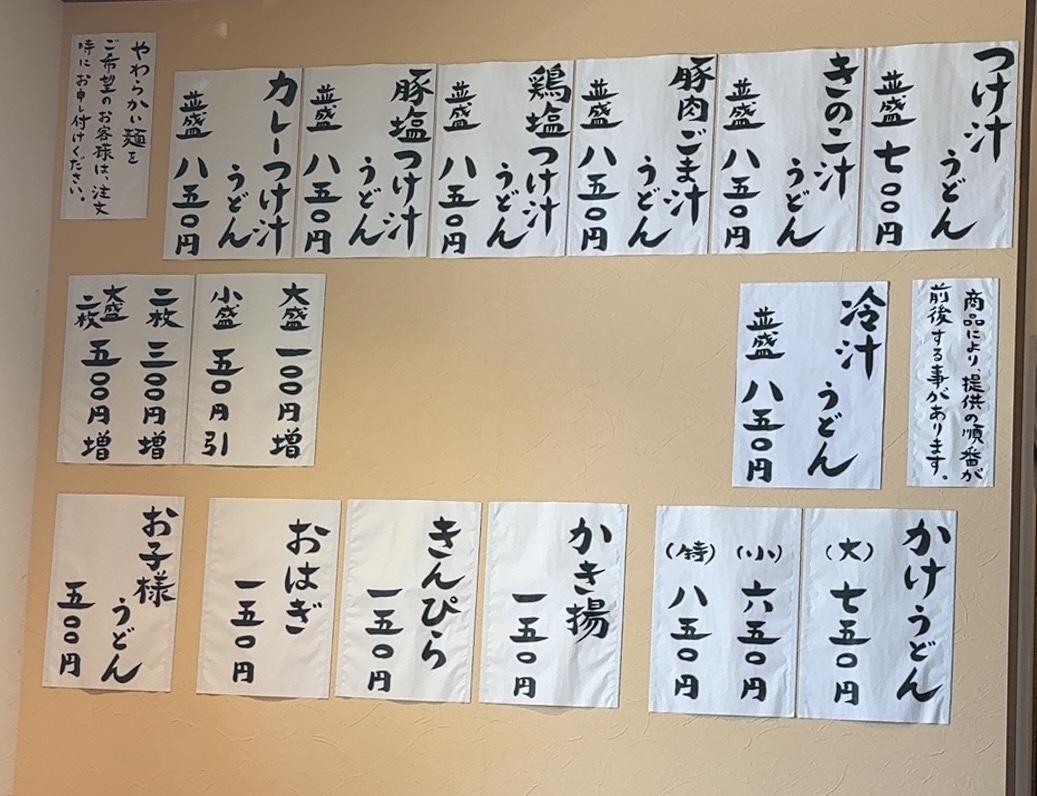 つけ汁
うどん
並盛 七〇〇円
きのこ汁
うどん
並盛 八五〇円
豚肉ごま汁
うどん
並盛 八五〇円
鶏塩つけ汁
うどん
並盛 八五〇円
豚塩つけ汁
うどん
並盛 八五〇円
カレーつけ汁
うどん
並盛 八五〇円
やわらかい麺を
ご希望のお客様は、注文
時にお申し付けください。
商品により、提供の順番が
前後する事があります。
冷汁
うどん
並盛 八五〇円
大盛 一〇〇円増
小盛 五〇円引
二枚 三〇〇円増
大盛二枚 五〇〇円増
かけうどん
(大) 七五〇円
(小) 六五〇円
(特) 八五〇円
かき揚
一五〇円
きんぴら
一五〇円
おはぎ
一五〇円
お子様
うどん
五〇〇円